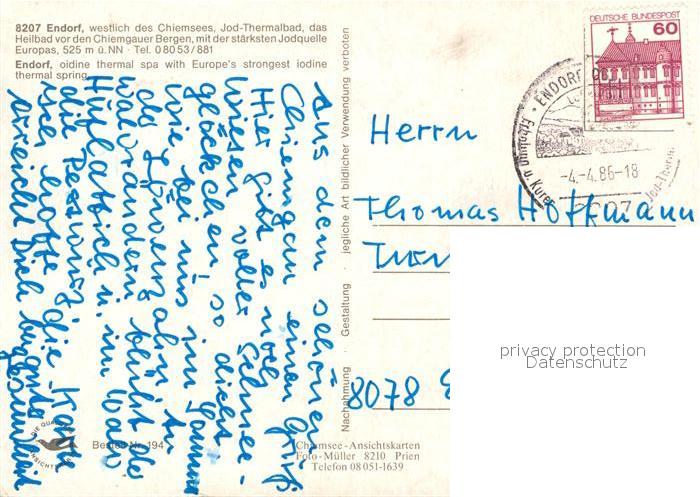 8207 Endorf, westlich des Chiemsees, Jod-Thermalbad, das
Heilbad vor den Chiemgauer Bergen, mit der stärksten Jodquelle
Europas, 525 m ü.NN · Tel. 0 80 53 / 881
Endorf, oidine thermal spa with Europe's strongest iodine
thermal spring
Aus dem schönen
Chiemgau einen Gruß
Hier gibt es noch
Wiesen voller Schnee-
glöckchen so dicht
wie bei uns im Sommer
der Löwenzahn. An
Waldrändern blüht der
Huflattich u. im Wald
die
hoffe die Karte
erreicht Dich
Nachahmung · Gestaltung · jegliche Art bildlicher Verwendung verboten
DEUTSCHE BUNDESPOST
60
ENDORF, OB
-4.-4.86-18
8207
Erholung u. Kuren
Jod-Therm
Herrn
Thomas Hoffmann
8078
privacy protection
Datenschutz
Bestell-Nr. 194
Chiemsee-Ansichtskarten
Foto-Müller 8210 Prien
Telefon 08051-1639